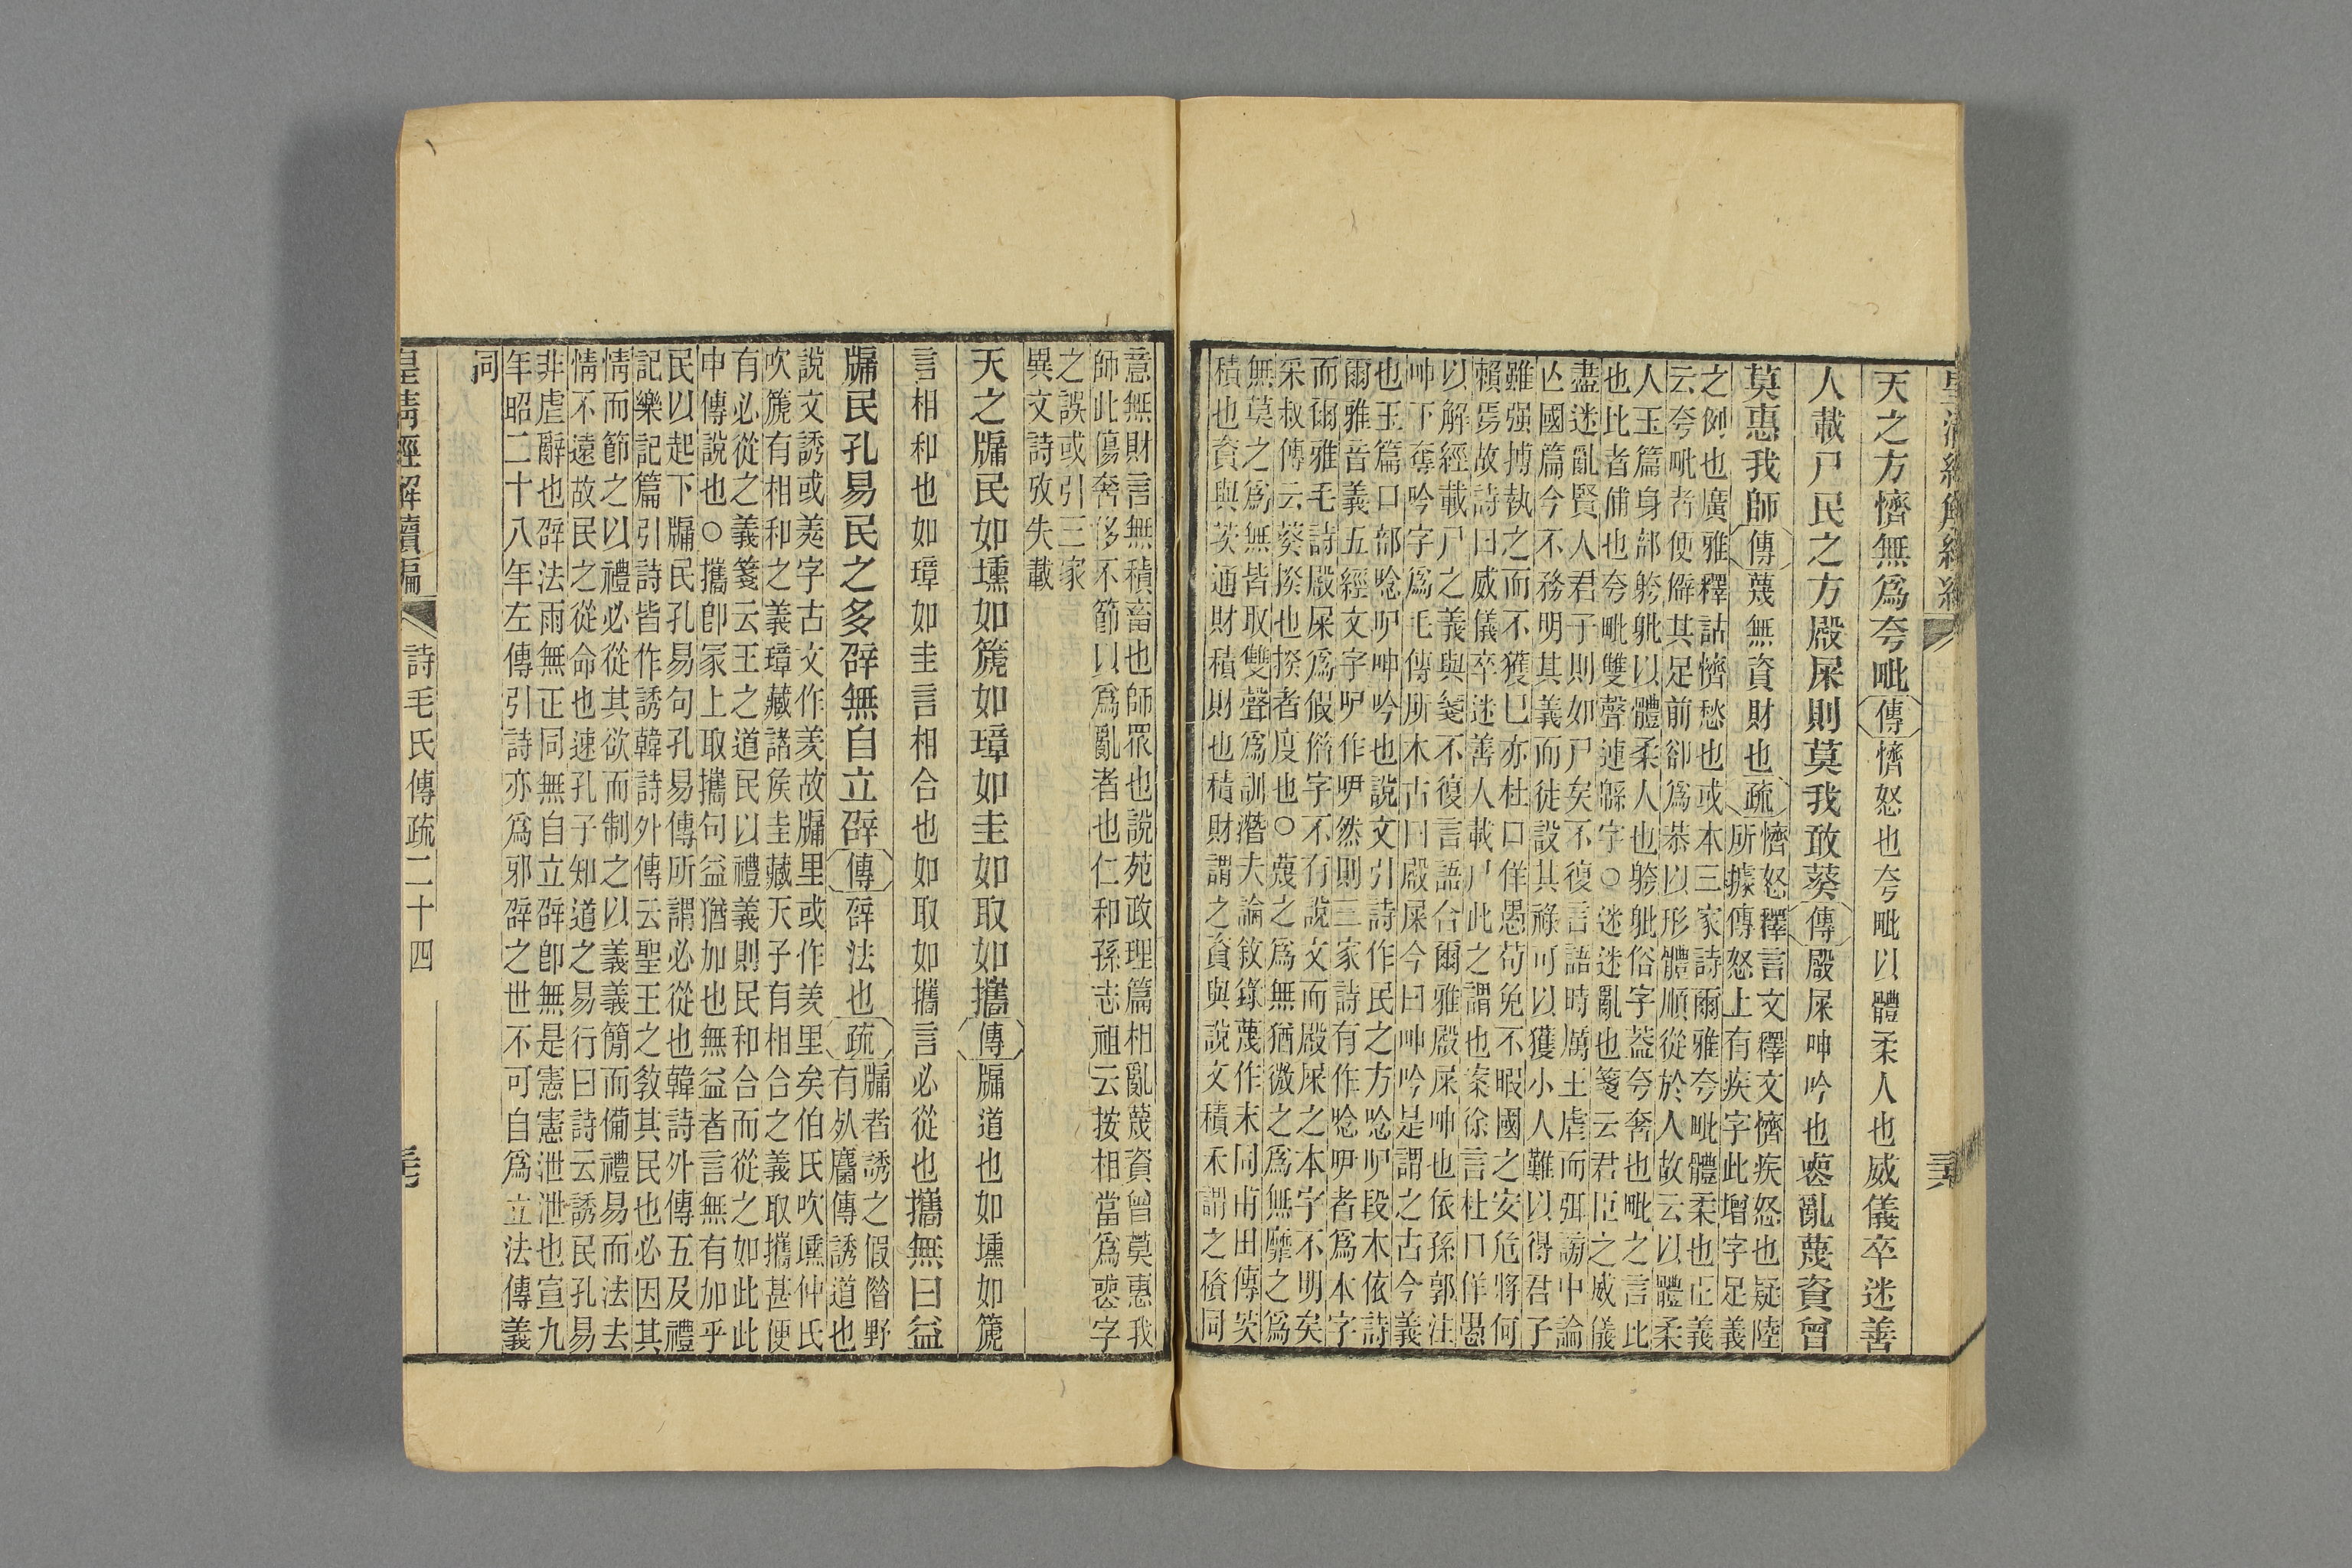 天之方懠無爲夸毗傳懠怒也夸毗以體柔人也威儀卒迷善
人載尸民之方殿屎則莫我敢葵傳殿屎呻吟也喪亂蔑資曾
莫惠我師傳蔑無資財也疏懠怒釋言文釋文懠疾怒也疑陸
所據傳怒上有疾字此增字足義
之例也廣雅釋詁懠愁也或本三家詩爾雅夸毗體柔也正義
云夸毗者便僻其足前卻爲恭以形體順從於人故云以體柔
人玉篇身部躮躰以體柔人也躮躰俗字葢夸奢也毗之言比
也此者俌也夸毗雙聲連緜字○迷迷亂也箋云君臣之威儀
盡迷亂賢人君子則如尸矣不復言語時厲王虐而弭謗中論
亾國篇今不務明其義而徒設其祿可以獲小人難以得君子
雖强搏執之而不獲已亦杜口佯愚苟免不暇國之安危將何
賴焉故詩曰威儀卒迷善人載尸此之謂也案徐言杜口佯愚
以解經載尸之義與箋不復言語合爾雅殿屎呻也依孫郭注
呻下奪吟字爲毛傳所本古曰殿屎今曰呻吟是謂之古今義
也玉篇口部唸吚呻吟也說文引詩作民之方唸吚段本依詩
爾雅音義五經文字吚作㕧然則三家詩有作唸㕧者爲本字
而爾雅毛詩殿屎爲假俗字不有說文而殿屎之本字不明矣
采叔傳云葵揆也揆者度也○蔑之爲無猶微之爲無靡之爲
無莫之爲無皆取雙聲爲訓潛夫論敘錄蔑作末同甫田傳茨
積也資與茨通財積財也積財謂之資與說文積禾謂之穧同
意無財言無積畜也師眾也說苑政理篇相亂蔑資曾莫惠我
師此傷奢侈不節以爲亂者也仁和孫志祖云按相當爲喪字
之誤或引三家
異文詩攷失載
天之牖民如壎如篪如璋如圭如取如攜傳牖道也如壎如篪
言相和也如璋如圭言相合也如取如攜言必從也攜無曰益
牖民孔易民之多辟無自立辟傳辟法也疏牖者誘之假借野
有死麕傳誘道也
說文誘或羑字古文作羑故牖里或作羑里矣伯氏吹壎仲氏
吹篪有相和之義璋藏諸矦圭藏天子有相合之義取攜甚便
有必從之義箋云王之道民以禮義則民和合而從之如此此
申傳說也○攜卽家上取攜句益猶加也無益者言無有加乎
民以起下牖民孔易句孔易傳所謂必從也韓詩外傳五及禮
記樂記篇引詩皆作誘韓詩外傳云聖王之敎其民也必因其
情而節之以禮必從其欲而制之以義義簡而備禮易而法去
情不遠故民之從命也速孔子知道之易行曰詩云誘民孔易
非虛辭也辟法雨無正同無自立辟卽無是憲憲泄泄也宣九
年昭二十八年左傳引詩亦爲邪辟之世不可自爲立法傳義
同
皇清經解續編　詩毛氏傳疏二十四